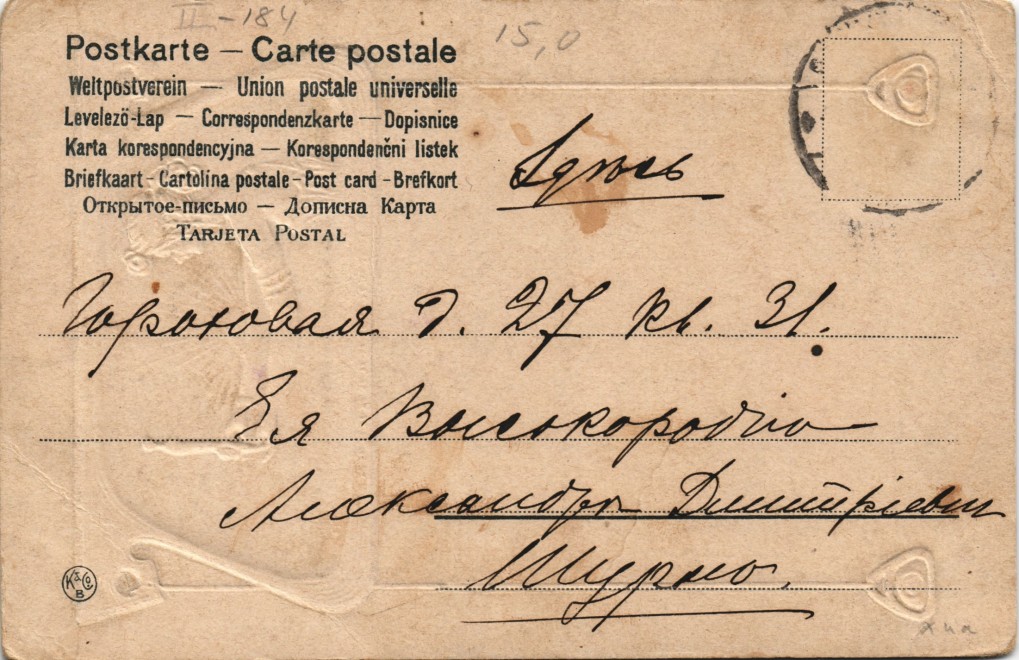 II-184
15,0
Postkarte – Carte postale
Weltpostverein — Union postale universelle
Levelező-Lap — Correspondenzkarte — Dopisnice
Karta korespondencyjna — Korespondenčni listek
Briefkaart - Cartolina postale - Post card - Brefkort
Открытое-письмо — Дописна Карта
Tarjeta Postal
Здѣсь
Гороховая д. 27 кв. 31.
Ея Высокородію
Александрѣ Дмитріевнѣ
Шурко
K & Co. B